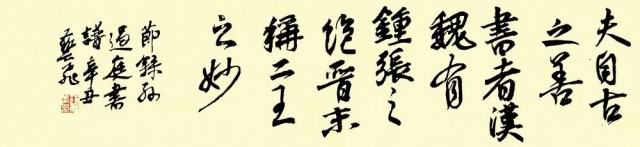 夫自古
之善
書者漢
魏有
鍾張之
絕晉末
稱二王
之妙
節錄孫
過庭書
譜辛丑